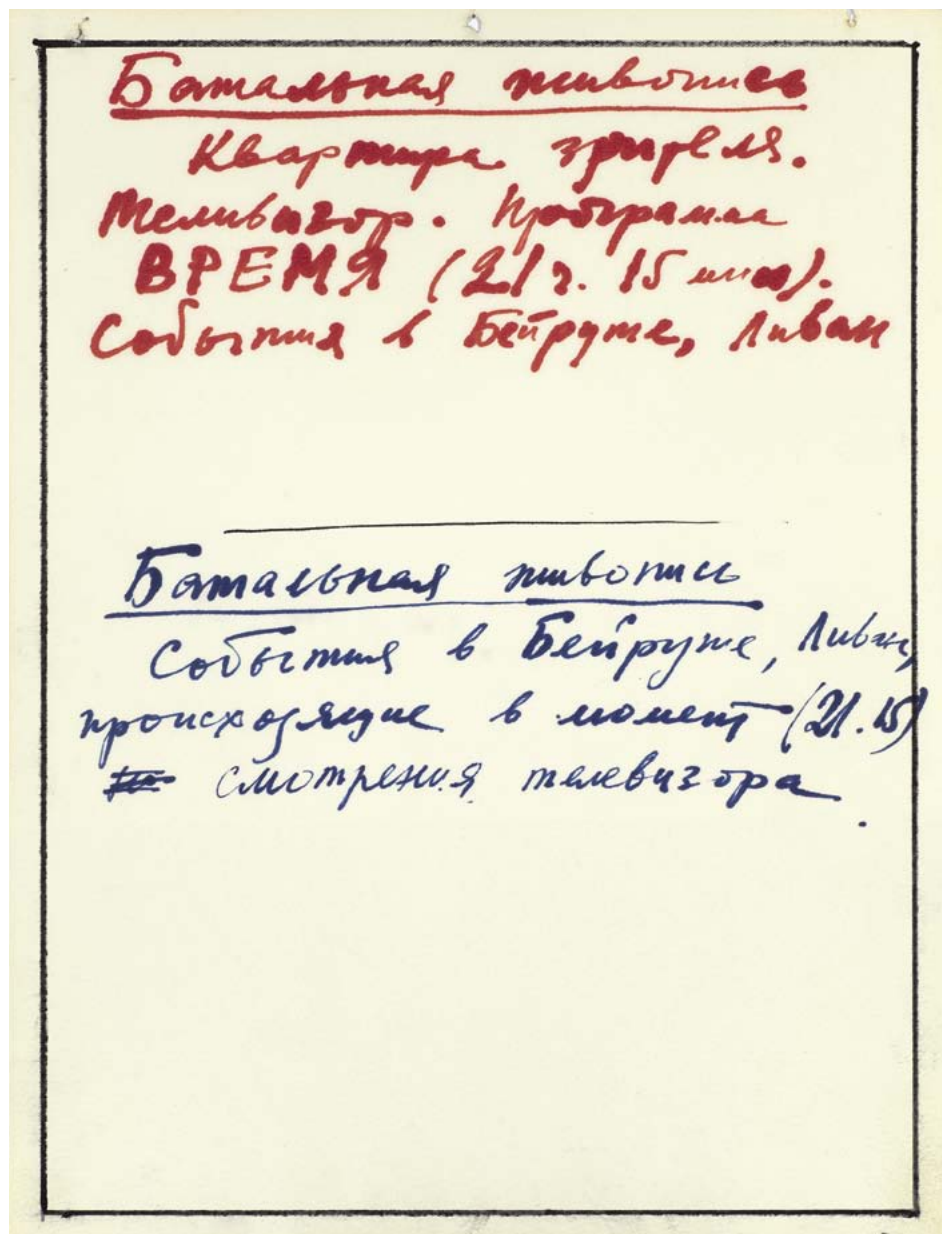 Батальная живопись
Квартира зрителя.
Теливизор. Программа
ВРЕМЯ (21 г. 15 мин).
События в Бейруте, Ливан
Батальная живопись
События в Бейруте, Ливан,
происходящие в момент (21.15)
смотрения телевизора.